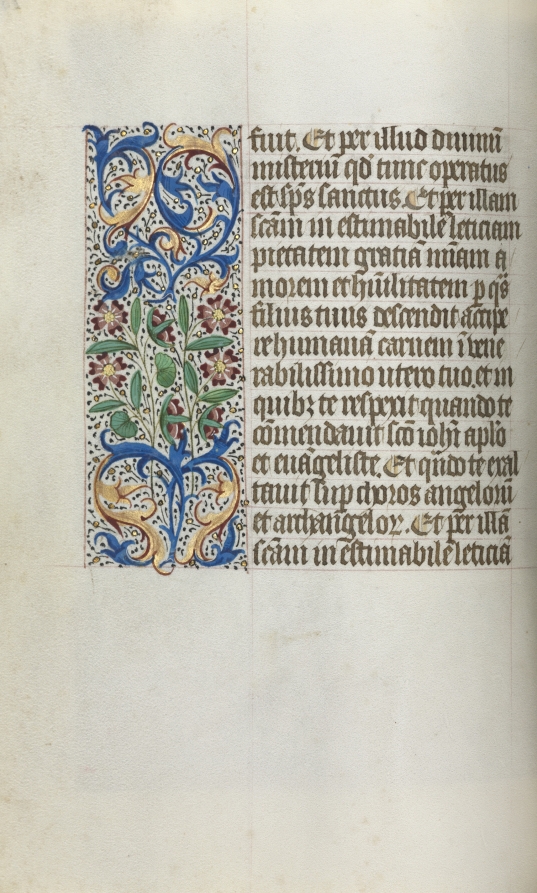 fuit. Et per illud diuinū
misteriū qd̄ tunc operatus
est sp̄s sanctus. Et per illam
scām in estimabilē leticiam
pietatem gratiā mīam a
morem et hūilitatem p qs̄
filius tuus descendit accipe
re humanā carnem ī vene
rabilissimo utero tuo. et in
quibꝫ te respexit quando te
cōmendauit scō iohī aplō
et euāgeliste. Et qn̄do te exal
tauit sup choros angeloꝝ
et archangeloꝝ. Et per illā
scām in estimabilē leticiā